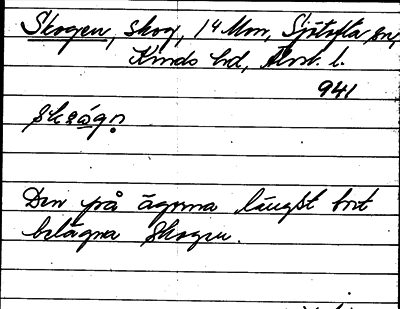 Skogen, skog, 14 Mon, Sjötofta sn,
Kinds hd, Älvsb. l.
941
Den på ägorna längst bort
belägna skogen.